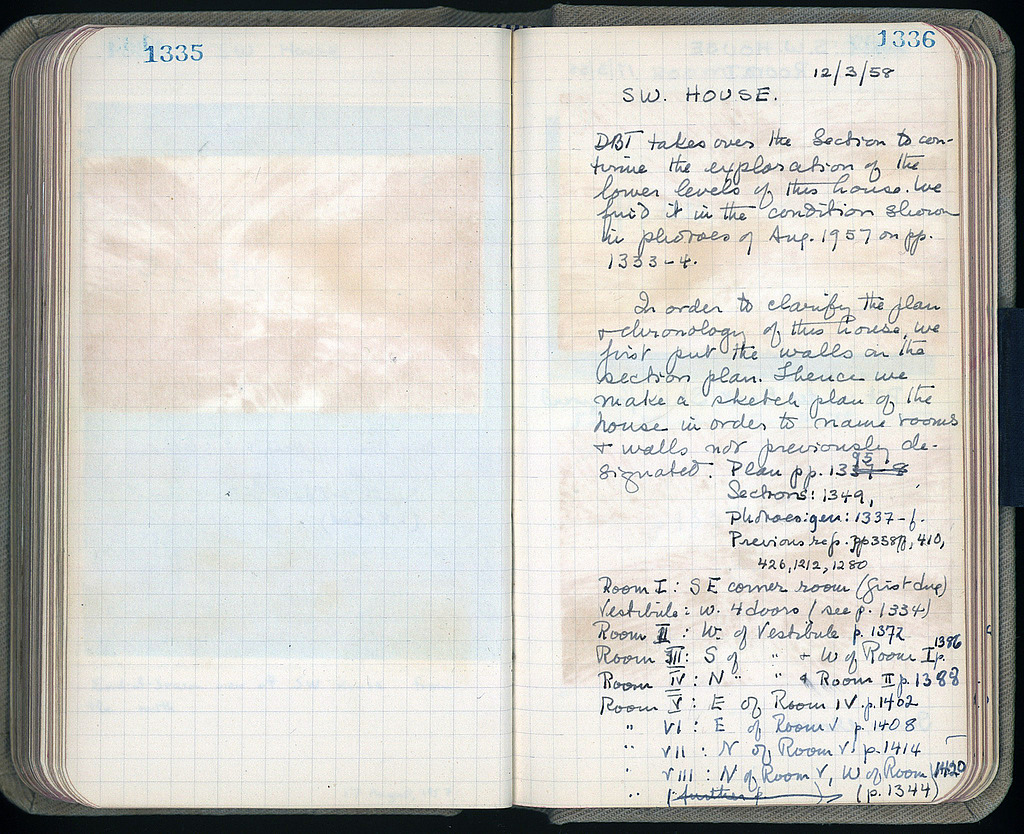 1335
1336
12/3/58
SW. HOUSE.
DBT takes over the Section to con-
tinue the exploration of the
lower levels of this house. We
find it in the condition shown
in photoes of Aug. 1957 on pp.
1333-4.
In order to clarify the plan
& chronology of this house, we
first put the walls on the
section plan. Thence we
make a sketch plan of the
house in order to name rooms
& walls not previously de-
signated. Plan pp. 1395,
Sections: 1349,
Photoes: gen: 1337-f.
Previous refs. pp 358ff, 410,
426, 1212, 1280
Room I: SE corner room (first dug)
Vestibule: w. 4 doors (see p. 1334)
Room II: W. of Vestibule p. 1372
Room III: S of " & W of Room I p. 1386
Room IV: N " " & Room II p. 1388
Room V: E of Room IV. p. 1402
" VI: E of Room V p. 1408
" VII: N of Room V, p. 1414
" VIII: N of Room V, W of Room 1420
" (further p ) (p. 1344)